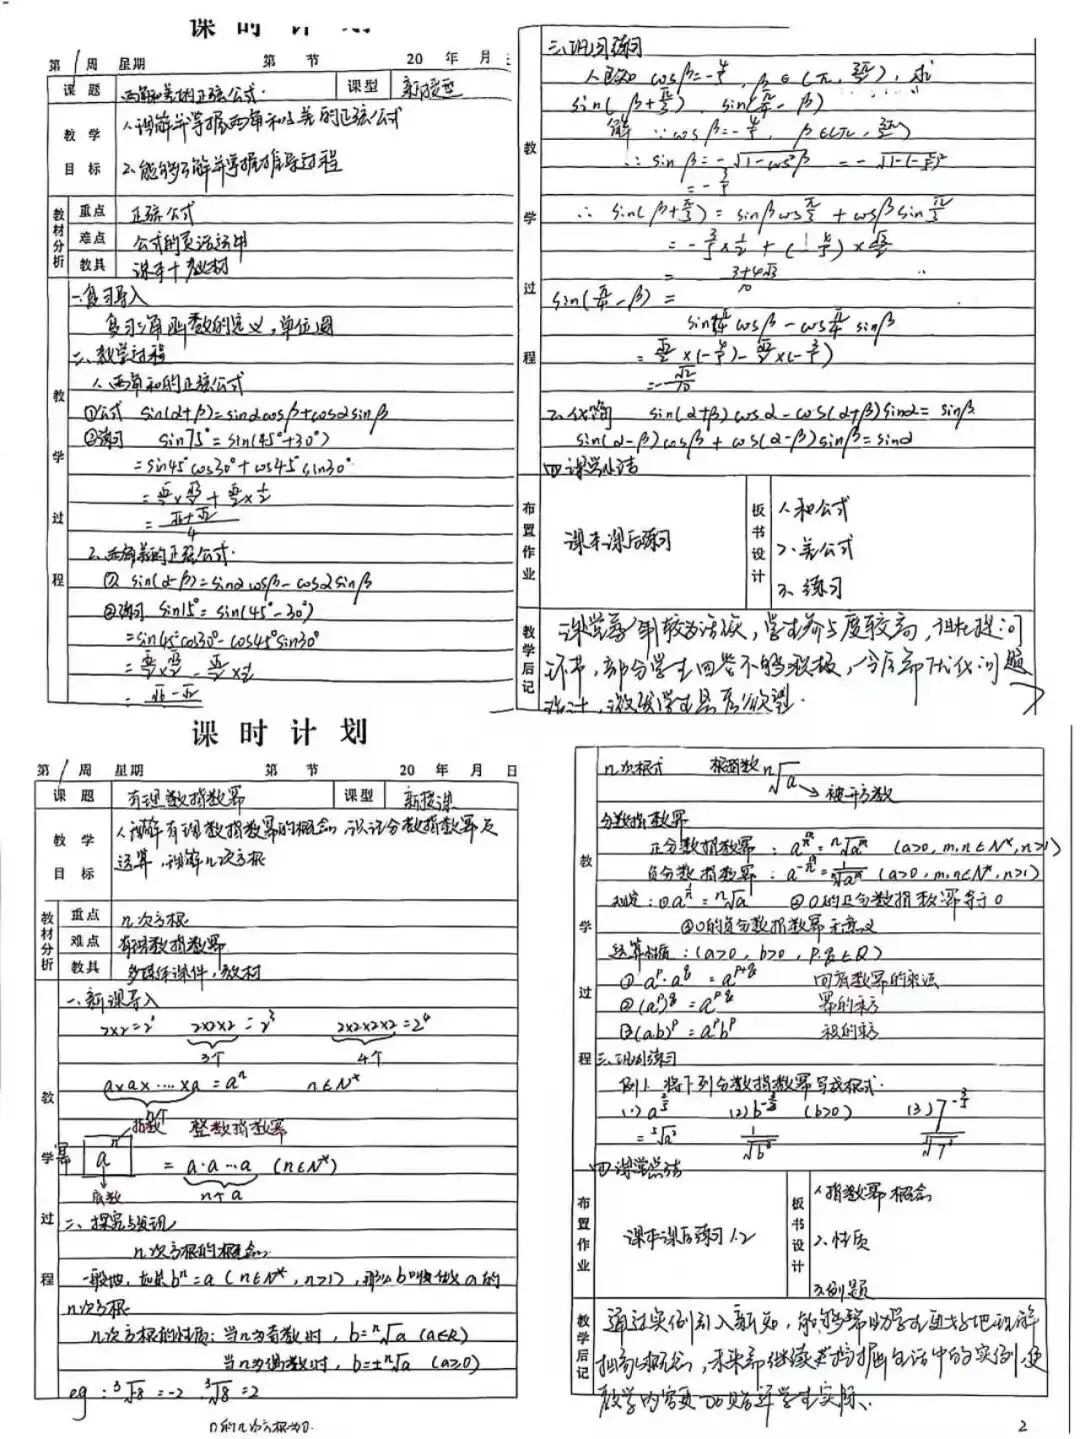 课时计划
第 1 周 星期 第 节 20 年 月
课题 两角和差的正弦公式. 课型 新授课
教学目标 1.理解并掌握两角和与差的正弦公式
2.能够了解并掌握推导过程
教材分析
重点 正弦公式
难点 公式的灵活运用
教具 课本+教材
教学过程
一.复习导入
复习三角函数的定义,单位圆
二、教学过程
1.两角和的正弦公式
①公式 sin(α+β)=sinαcosβ+cosαsinβ
②练习 sin75°=sin(45°+30°)
=sin45°cos30°+cos45°sin30°
=√2/2×√3/2+√2/2×1/2
=(√6+√2)/4
2.两角差的正弦公式.
① sin(α-β)=sinαcosβ-cosαsinβ
②练习 sin15°=sin(45°-30°)
=sin45°cos30°-cos45°sin30°
=√2/2×√3/2-√2/2×1/2
=√6-√2
教学过程
三.巩固练习
1.已知cosβ=-4/5,β∈(π,3π/2),求
sin(β+π/3),sin(π/4-β)
解 ∵cosβ=-4/5,β∈(π,3π/2)
∴sinβ=-√(1-cos²β)=-√(1-(-4/5)²)
=-3/5
∴sin(β+π/3)=sinβcosπ/3+cosβsinπ/3
=-3/5×1/2+(-4/5)×√3/2
=3+4√3/10
sin(π/4-β)=
sinπ/4cosβ-cosπ/4sinβ
=√2/2×(-4/5)-√2/2×(-3/5)
=-√2/10
2.化简 sin(α+β)cosα-cos(α+β)sinα=sinβ
sin(α-β)cosβ+cos(α-β)sinβ=sinα
四.课堂小结
布置作业 课本课后练习
板书设计
1.和公式
2.差公式
3.练习
教学后记
课堂氛围较为活跃,学生参与度较高,但在提问
环节,部分学生回答不够积极,今后需优化问题
设计,激发学生思考欲望.
课时计划
第 1 周 星期 第 节 20 年 月 日
课题 有理数指数幂 课型 新授课
教学目标 1.理解有理数指数幂的概念,识记分数指数幂及
运算,理解n次方根
教材分析
重点 n次方根
难点 有理数指数幂
教具 多媒体课件,教材
教学过程
一.新课导入
2×2=2² 2×2×2=2³ 2×2×2×2=2⁴
3个 4个
a×a×····×a=aⁿ n∈N*
n个
指数 整数指数幂
幂 aⁿ =a·a…a (n∈N*)
底数 n个a
二、探究与发现
n次方根的概念.
一般地,如果bⁿ=a(n∈N*,n>1),那么b叫做a的
n次方根
n次方根的性质:当n为奇数时,b=ⁿ√a (a∈R)
当n为偶数时,b=±ⁿ√a (a≥0)
eg:³√-8=-2 ³√8=2
0的n次方根为0.
教学过程
n次根式 根指数 ⁿ√a
被开方数
分数指数幂
正分数指数幂:a^(m/n)=ⁿ√aᵐ (a>0,m,n∈N*,n>1)
负分数指数幂:a^(-m/n)=1/ⁿ√aᵐ (a>0,m,n∈N*,n>1)
规定:①a^(1/n)=ⁿ√a ②0的正分数指数幂等于0
③0的负分数指数幂无意义
运算性质:(a>0,b>0,p.q∈Q)
①aᵖ·a^q=a^(p+q) 同底数幂的乘法
②(aᵖ)^q=a^(pq) 幂的乘方
③(ab)ᵖ=aᵖbᵖ 积的乘方
三.巩固练习
例1.将下列分数指数幂写成根式.
(1)a^(2/5) (2)b^(-3/2) (b>0) (3)7^(-3/5)
=⁵√a² 1/√b³ 1/⁵√7³
四.课堂总结
布置作业 课本课后练习1.2
板书设计
1.指数幂概念
2.性质
3.例题
教学后记
通过实例引入新知,能够帮助学生更好地理解
抽象概念,未来需继续挖掘生活中的实例,使
教学内容更加贴近学生实际.
2